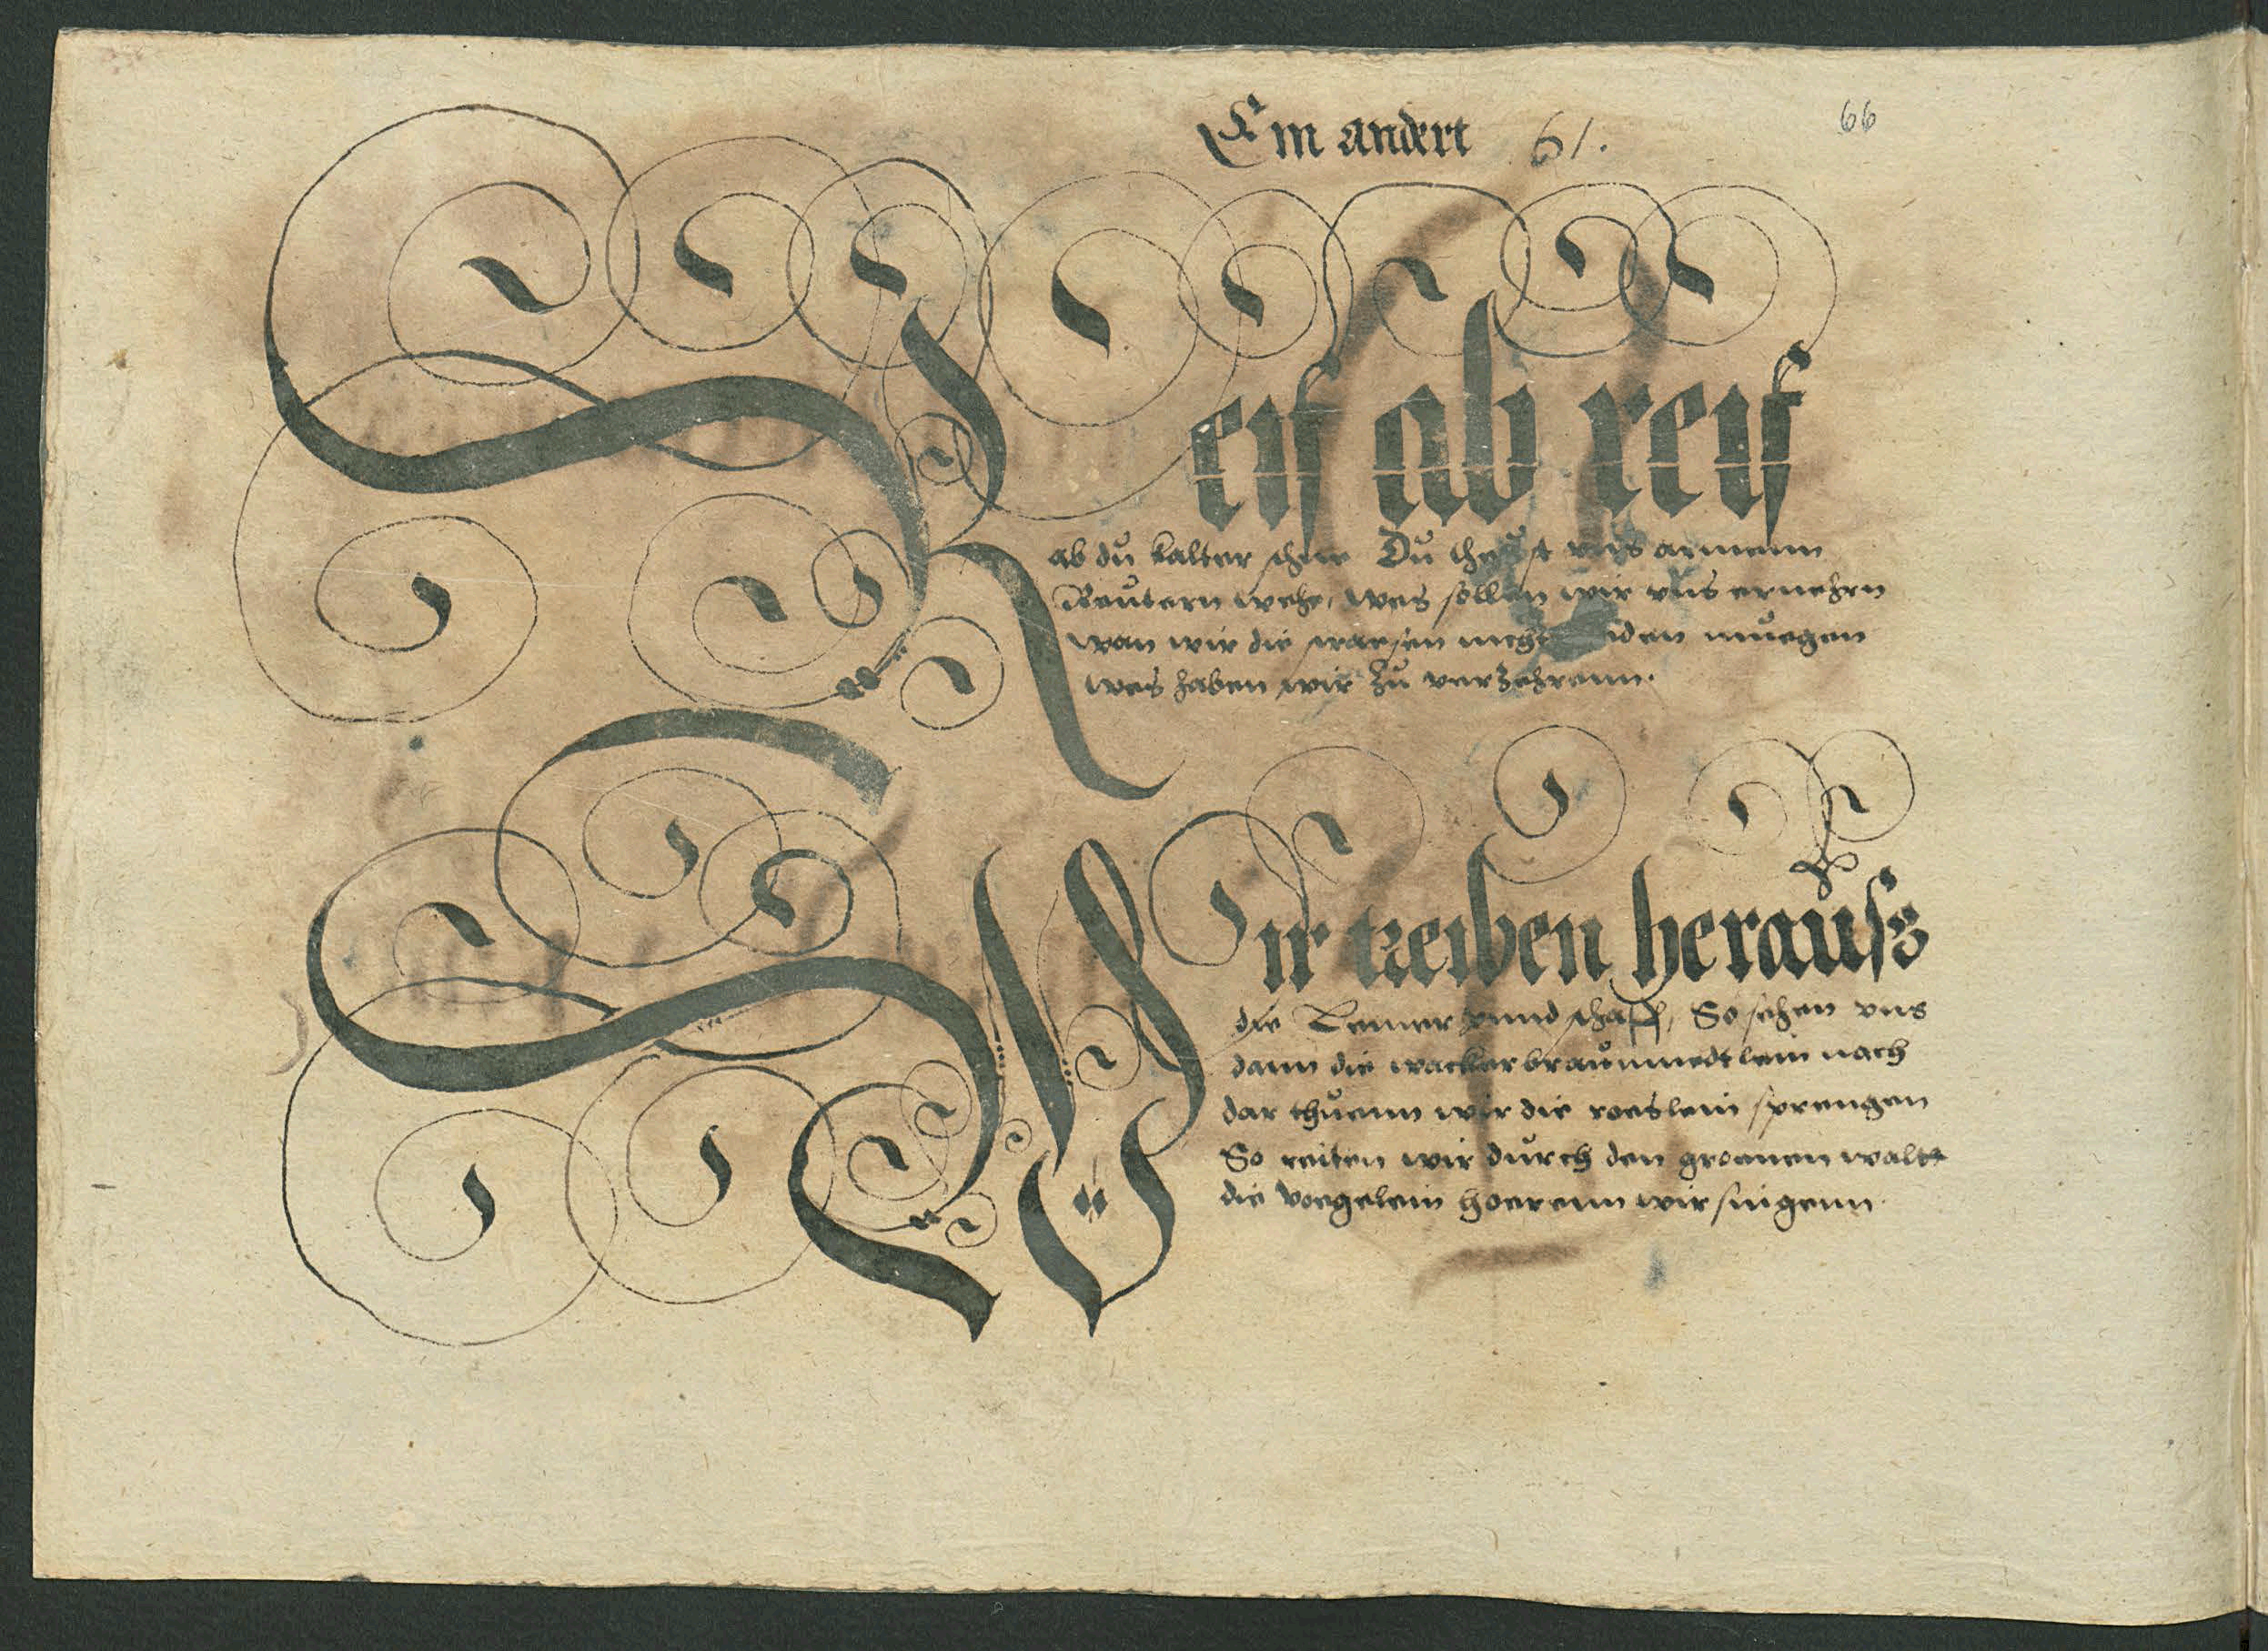 Ein andert 61.
66
Reif ab reif
ab du kalter schne Du theust vns armenn
Reutern wehe, wes sollen wir vns ernehrn
wan wir die strassen nicht muegen
wes haben wir zu verzehrenn.
Wir treiben herauss
die Lemer vnnd schaff, So sehen vns
dann die wacker braunmedtlein nach
dar thuenn wir die roeslein sprengen
So reiten wir durch den groenen waltt
die voegelein hoerenn wir singenn